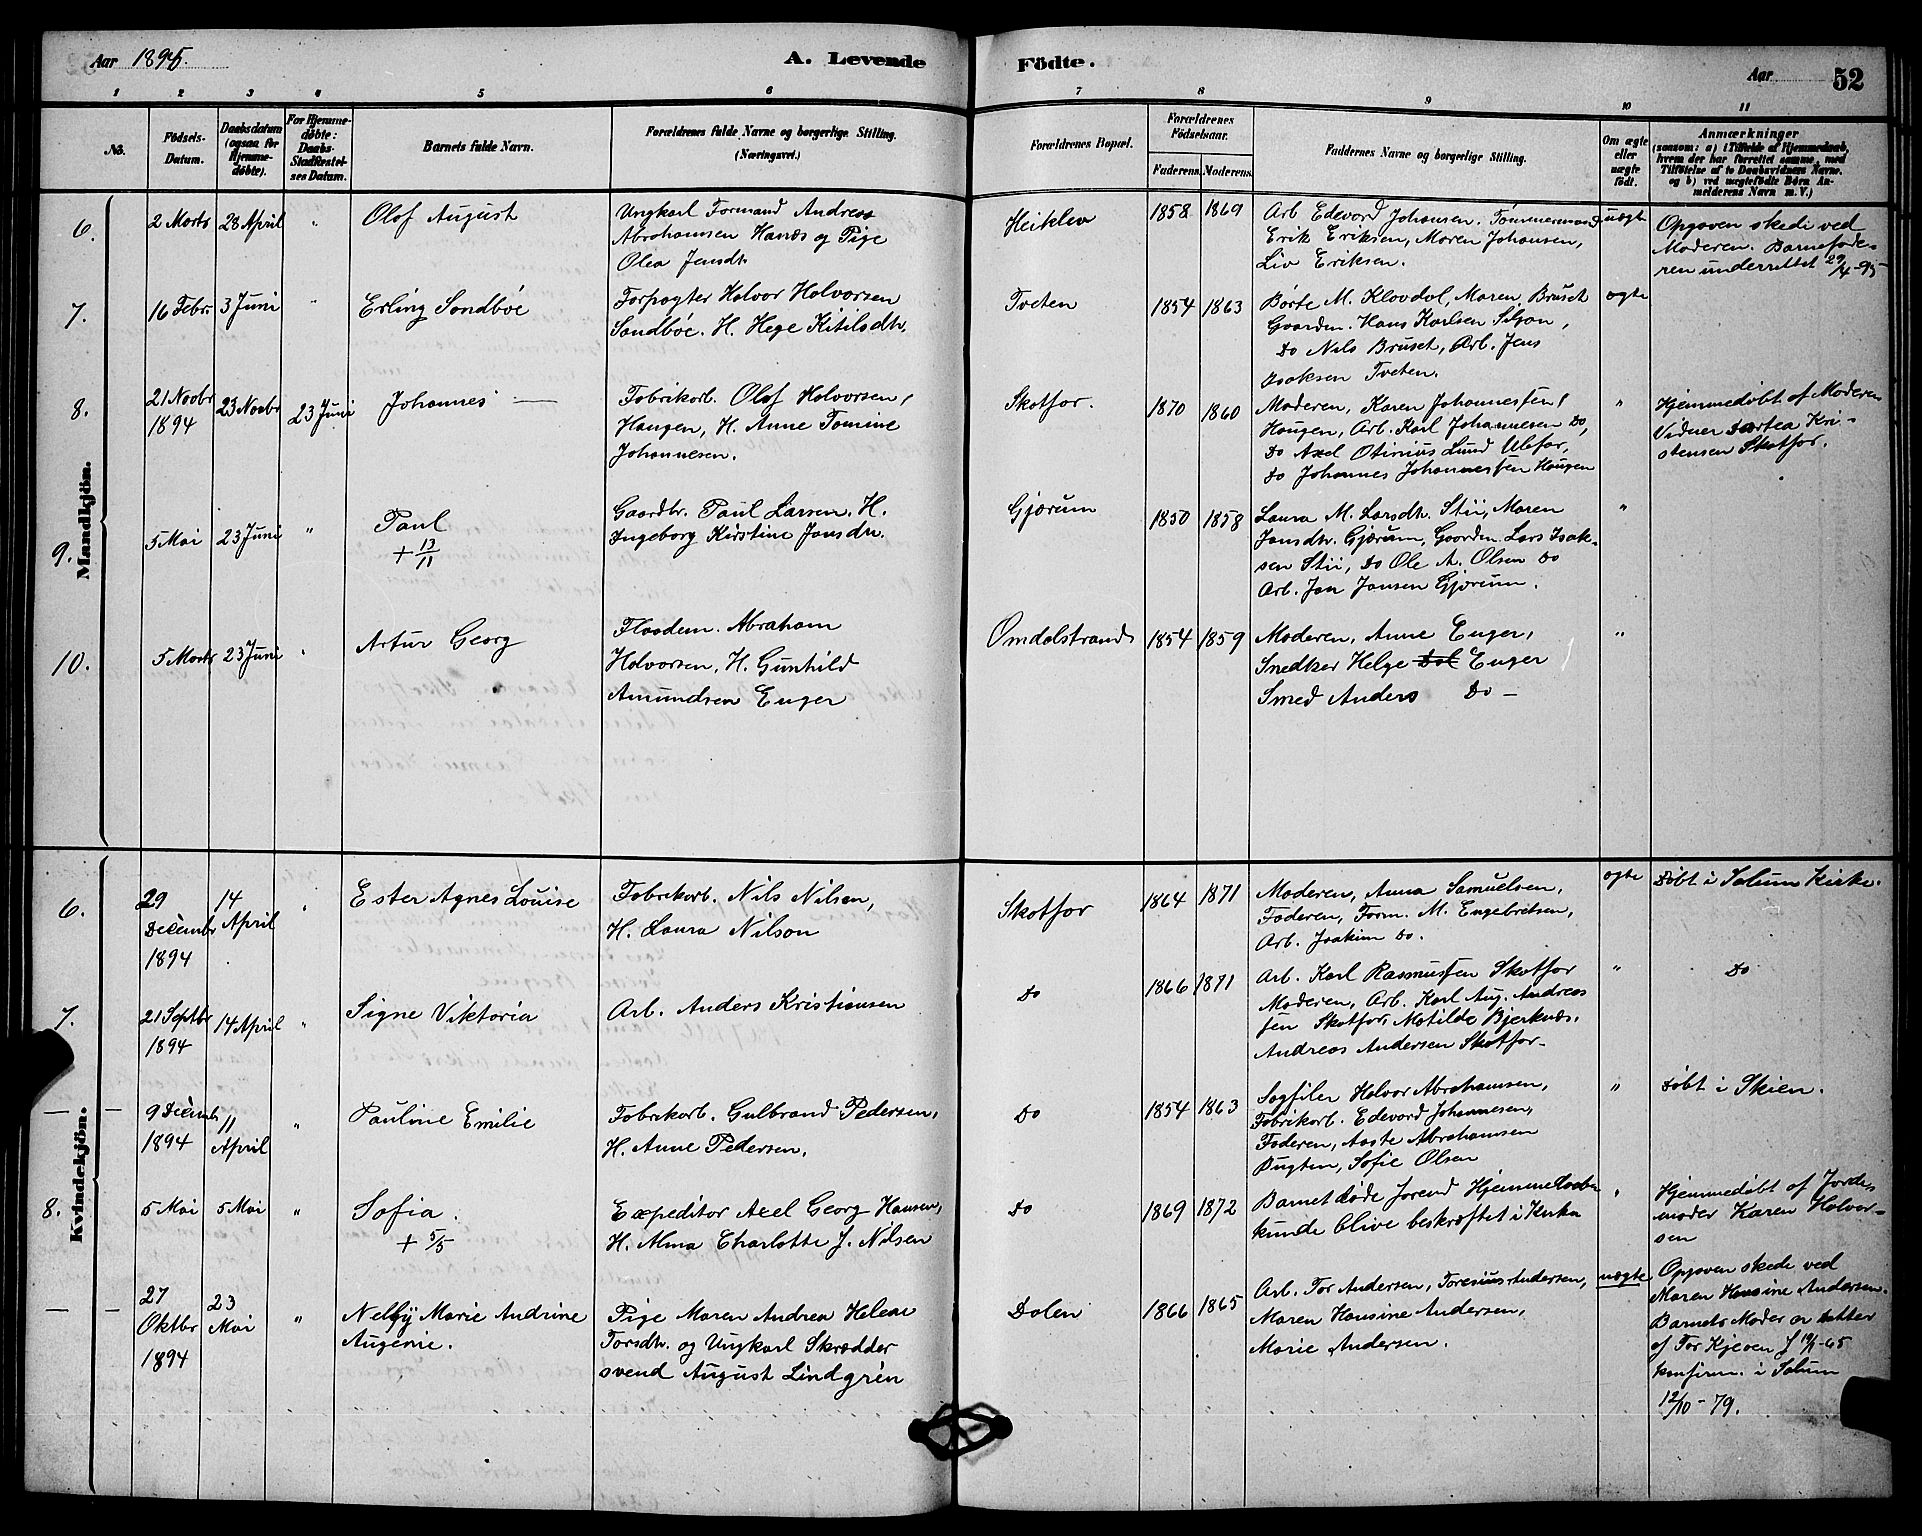 Aar 1895.
A. Levende
Födte.
Aar
52
1 2 3 4 5 6 7 8 9 10 11
No.
Födsels-
Datum.
Daabsdatum
(ogsaa for
Hjemme-
døbte).
For Hjemme-
døbte:
Daabs-
Stadfæstel-
ses Datum.
Barnets fulde Navn.
Forældrenes fulde Navne og borgerlige Stilling.
(Næringsvei.)
Forældrenes Bopæl.
Forældrenes
Födselsaar.
Faderens. Moderens.
Faddernes Navne og borgerlige Stilling.
Om ægte
eller
uægte
født.
Anmærkninger
(saasom: a) i Tilfælde af Hjemmedaab,
hvem der har forrettet samme, med
Tilføielse af to Daabsvidners Navne.
og b) ved uægtefödte Börn An-
melderens Navn m. V.)
Mandkjön.
6.
2 Marts
28 April
"
Olof August
Ungkarl Formand Andreas
Abrahamsen Hanæs og Pige
Olea Jensdtr.
Heiklev
1858
1869
Arb. Edevard Johansen. Tømmermand
Erik Eriksen, Maren Johansen,
Liv Eriksen.
uægte
Opgaven skede ved
Moderen. Barnefade-
ren underrettet 29/4-95
7.
16 Febr.
3 Juni
"
Erling Sandbøe
Forpagter Halvor Halvorsen
Sandbøe. H. Hege Kitilsdtr.
Tveten
1854
1863
Børte M. Klovdal, Maren Bruset
Gaarden. Hans Karlsen Siljan,
Do Nils Bruset, Arb. Jens
Isaksen Tveten.
ægte
8.
21 Novbr
1894
23 Novbr
23 Juni
Johannes —
Fabrikarb. Olaf Halvorsen,
Haugen, H. Anne Tomine
Johannesen.
Skotfos.
1870
1860
Moderen, Karen Johannessen,
Haugen, Arb. Karl Johannesen Do,
Do Axel Otinius Lund Ulefos,
Do Johannes Johannessen Haugen
"
Hjemmedøbt af Moderen
Vidner Dortea Kri-
stensen Skotfos.
9.
5 Mai
23 Juni
"
Paul
+ 13/11
Gaardbr. Paul Larsen. H.
Ingeborg Kirstine Jansdtr.
Gjærum
1850
1858
Laura M. Larsdtr. Stii, Maren
Jansdtr. Gjærum, Gaarden. Lars Isak-
sen Stii, Do Ole A. Olsen Do
Arb. Jan Jansen Gjærum.
"
10.
5 Marts
23 Juni
"
Artur Georg
Flaadem. Abraham
Halvorsen, H. Gunhild
Amundsen Enger
Omdalstrand
1854
1859
Moderen, Anne Enger,
Snedker Helge Dal Enger
Smed Anders Do —
"
Kvindekjön.
6.
29
Decembr
1894
14
April
"
Ester Agnes Louise
Fabrikarb. Nils Nilsen,
H. Laura Nilson
Skotfos
1864
1871
Moderen, Anna Samuelsen,
Faderen, Form. M. Engebretsen,
Arb. Joakim Do.
ægte
Døbt i Solum Kirke.
7.
21 Septbr
1894
14 April
"
Signe Viktoria
Arb. Anders Kristiansen
Do
1866
1871
Arb. Karl Rasmussen Skotfos
Moderen, Arb. Karl Aug. Andreas
sen Skotfos, Matilde Bjerknæs.
Andreas Andersen Skotfos—
"
Do
—
9 Decemb
1894
11
April
"
Pauline Emilie
Fabrikarb. Gulbrand Pedersen,
H. Anne Pedersen.
Do
1854
1863
Sagfiler Halvor Abrahamsen,
Fabrikarb. Edevard Johannesen,
Faderen, Aaste Abrahamsen
Bugten, Sofie Olsen
"
Døbt i Skien.
8.
5 Mai
5 Mai
"
Sofia.
+ 5/5
Expeditor Axel Georg Hansen,
H. Alma Charlotte J. Nilsen
Do
1869
1872
Barnet døde forend Hjemmedaaben
kunde blive bekræftet i Kirken
"
Hjemmedøbt af Jorde-
moder Karen Halvor-
sen
—
27
Oktbr
1894
23
Mai
"
Nelly Marie Andrine
Augenie.
Pige Maren Andrea Helene
Torsdtr. og Ungkarl Skrædder
svend August Lindgrén
Dalen
1866
1865
Arb. Tor Andersen, Toresius Andersen,
Maren Hansine Andersen,
Marie Andersen.
uægte
Opgaven skede ved
Maren Hansine Andersen.
Barnets Moder er datter
af Tor Kjeøen f 19/1-65
konfirm. i Solum
12/10-79.